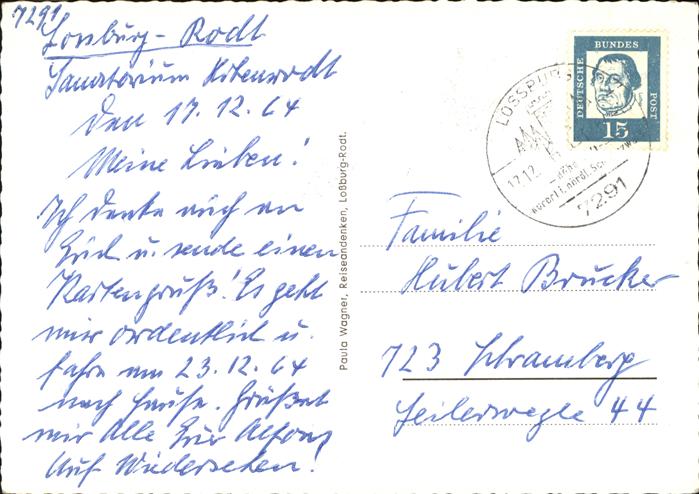 7291
Lossburg - Rodt
Sanatorium Hohenrodt
Den 17.12.64
Meine Lieben!
Ich denke auch an
Euch u. sende einen
Kartengruß! Es geht
mir ordentlich u.
fahre am 23.12.64
nach Hause. Grüßet
mir Alle Eur Alfons
Auf Wiedersehen!
Paula Wagner, Reiseandenken, Loßburg-Rodt.
DEUTSCHE BUNDES POST
15
LOSSBURG
17.12.
7291
Familie
Hubert Brucker
723 Schramberg
Seilerwegle 44